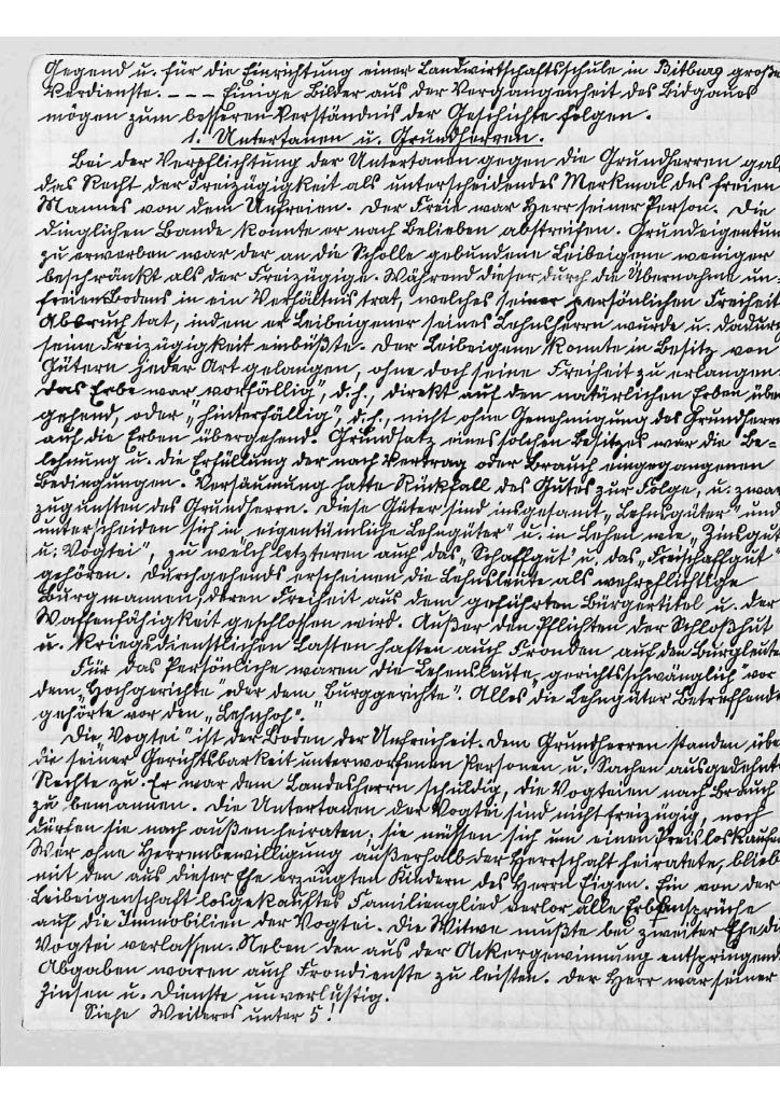 Gegend u. für die Einrichtung einer Landwirtschaftsschule in Bitburg große
Verdienste. - - - Einige Bilder aus der Vergangenheit des Bidgaues
mögen zum besseren Verständnis der Geschichte folgen.
1. Untertanen u. Grundherren.
Bei der Verpflichtung der Untertanen gegen die Grundherren galt
das Recht der Freizügigkeit als unterscheidendes Merkmal des freien
Mannes von dem Unfreien. Der Freie war Herr seiner Person. Die
dinglichen Bande konnte er nach Belieben abstreifen. Grundeigentum
zu erwerben war der an die Scholle gebundene Leibeigene weniger
beschränkt als der Freizügige. Während dieser durch die Übernahme un-
freien Bodens in ein Verhältnis trat, welches seiner persönlichen Freiheit
Abbruch tat, indem er Leibeigener seines Lehnsherrn wurde u. dadurch
seine Freizügigkeit einbüßte. Der Leibeigene konnte in Besitz von
Gütern jeder Art gelangen, ohne doch seine Freiheit zu erlangen.
Das Erbe war "vorfällig", d.h., direkt auf den natürlichen Erben über
gehend, oder "hinterfällig", d.h., nicht ohne Genehmigung des Grundherrn
auf die Erben übergehend. Grundsatz eines solchen Besitzes war die Be-
lehnung u. die Erfüllung der nach Vertrag oder Brauch eingegangenen
Bedingungen. Versäumung hatte Rückfall des Gutes zur Folge, u. zwar
zugunsten des Grundherrn. Diese Güter sind insgesamt "Lehnsgüter" und
unterscheiden sich in eigentümliche Lehngüter" u. in Lehen wie "Zinsgut
u. Vogtei", zu welch letzteren auch das "Schaffgut" u. das "Freischaffgut"
gehören. Durchgehends erscheinen die Lehnsleute als wehrpflichtige
Burgmannen, deren Freiheit aus dem geführten Bürgertitel u. der
Waffenfähigkeit geschlossen wird. Außer den Pflichten der Schloßhut
u. kriegsdienstlichen Lasten haften auch Fronden auf den Burgleuten
Für das Persönliche waren die Lehensleute "gerichtsschwänglich" vor
dem "Hochgerichte" oder dem "Burggerichte". Alles die Lehngüter Betreffende
gehörte vor den "Lehnhof".
"Die Vogtei" ist der Boden der Unfreiheit. Dem Grundherren standen über
die seiner Gerichtsbarkeit unterworfenen Personen u. Sachen ausgedehnte
Rechte zu. Er war dem Landesherrn schuldig, die Vogteien nach Brauch
zu bemannen. Die Untertanen der Vogtei sind nicht freizügig, noch
dürfen sie nach außen heiraten; sie müssen sich um einen Preis loskaufen
Wer ohne Herrenbewilligung außerhalb der Herrschaft heiratete, blieb
mit den aus dieser Ehe erzeugten Kindern des Herrn Eigen. Ein von der
Leibeigenschaft losgekauftes Familienglied verlor alle Erbansprüche
auf die Immobilien der Vogtei. Die Witwe mußte bei zweiter Ehe die
Vogtei verlassen. Neben den aus der Ackergewinnung entspringenden
Abgaben waren auch Frondienste zu leisten. Der Herr war seiner
Zinsen u. Dienste unverlustig.
Siehe Weiteres unter 5!